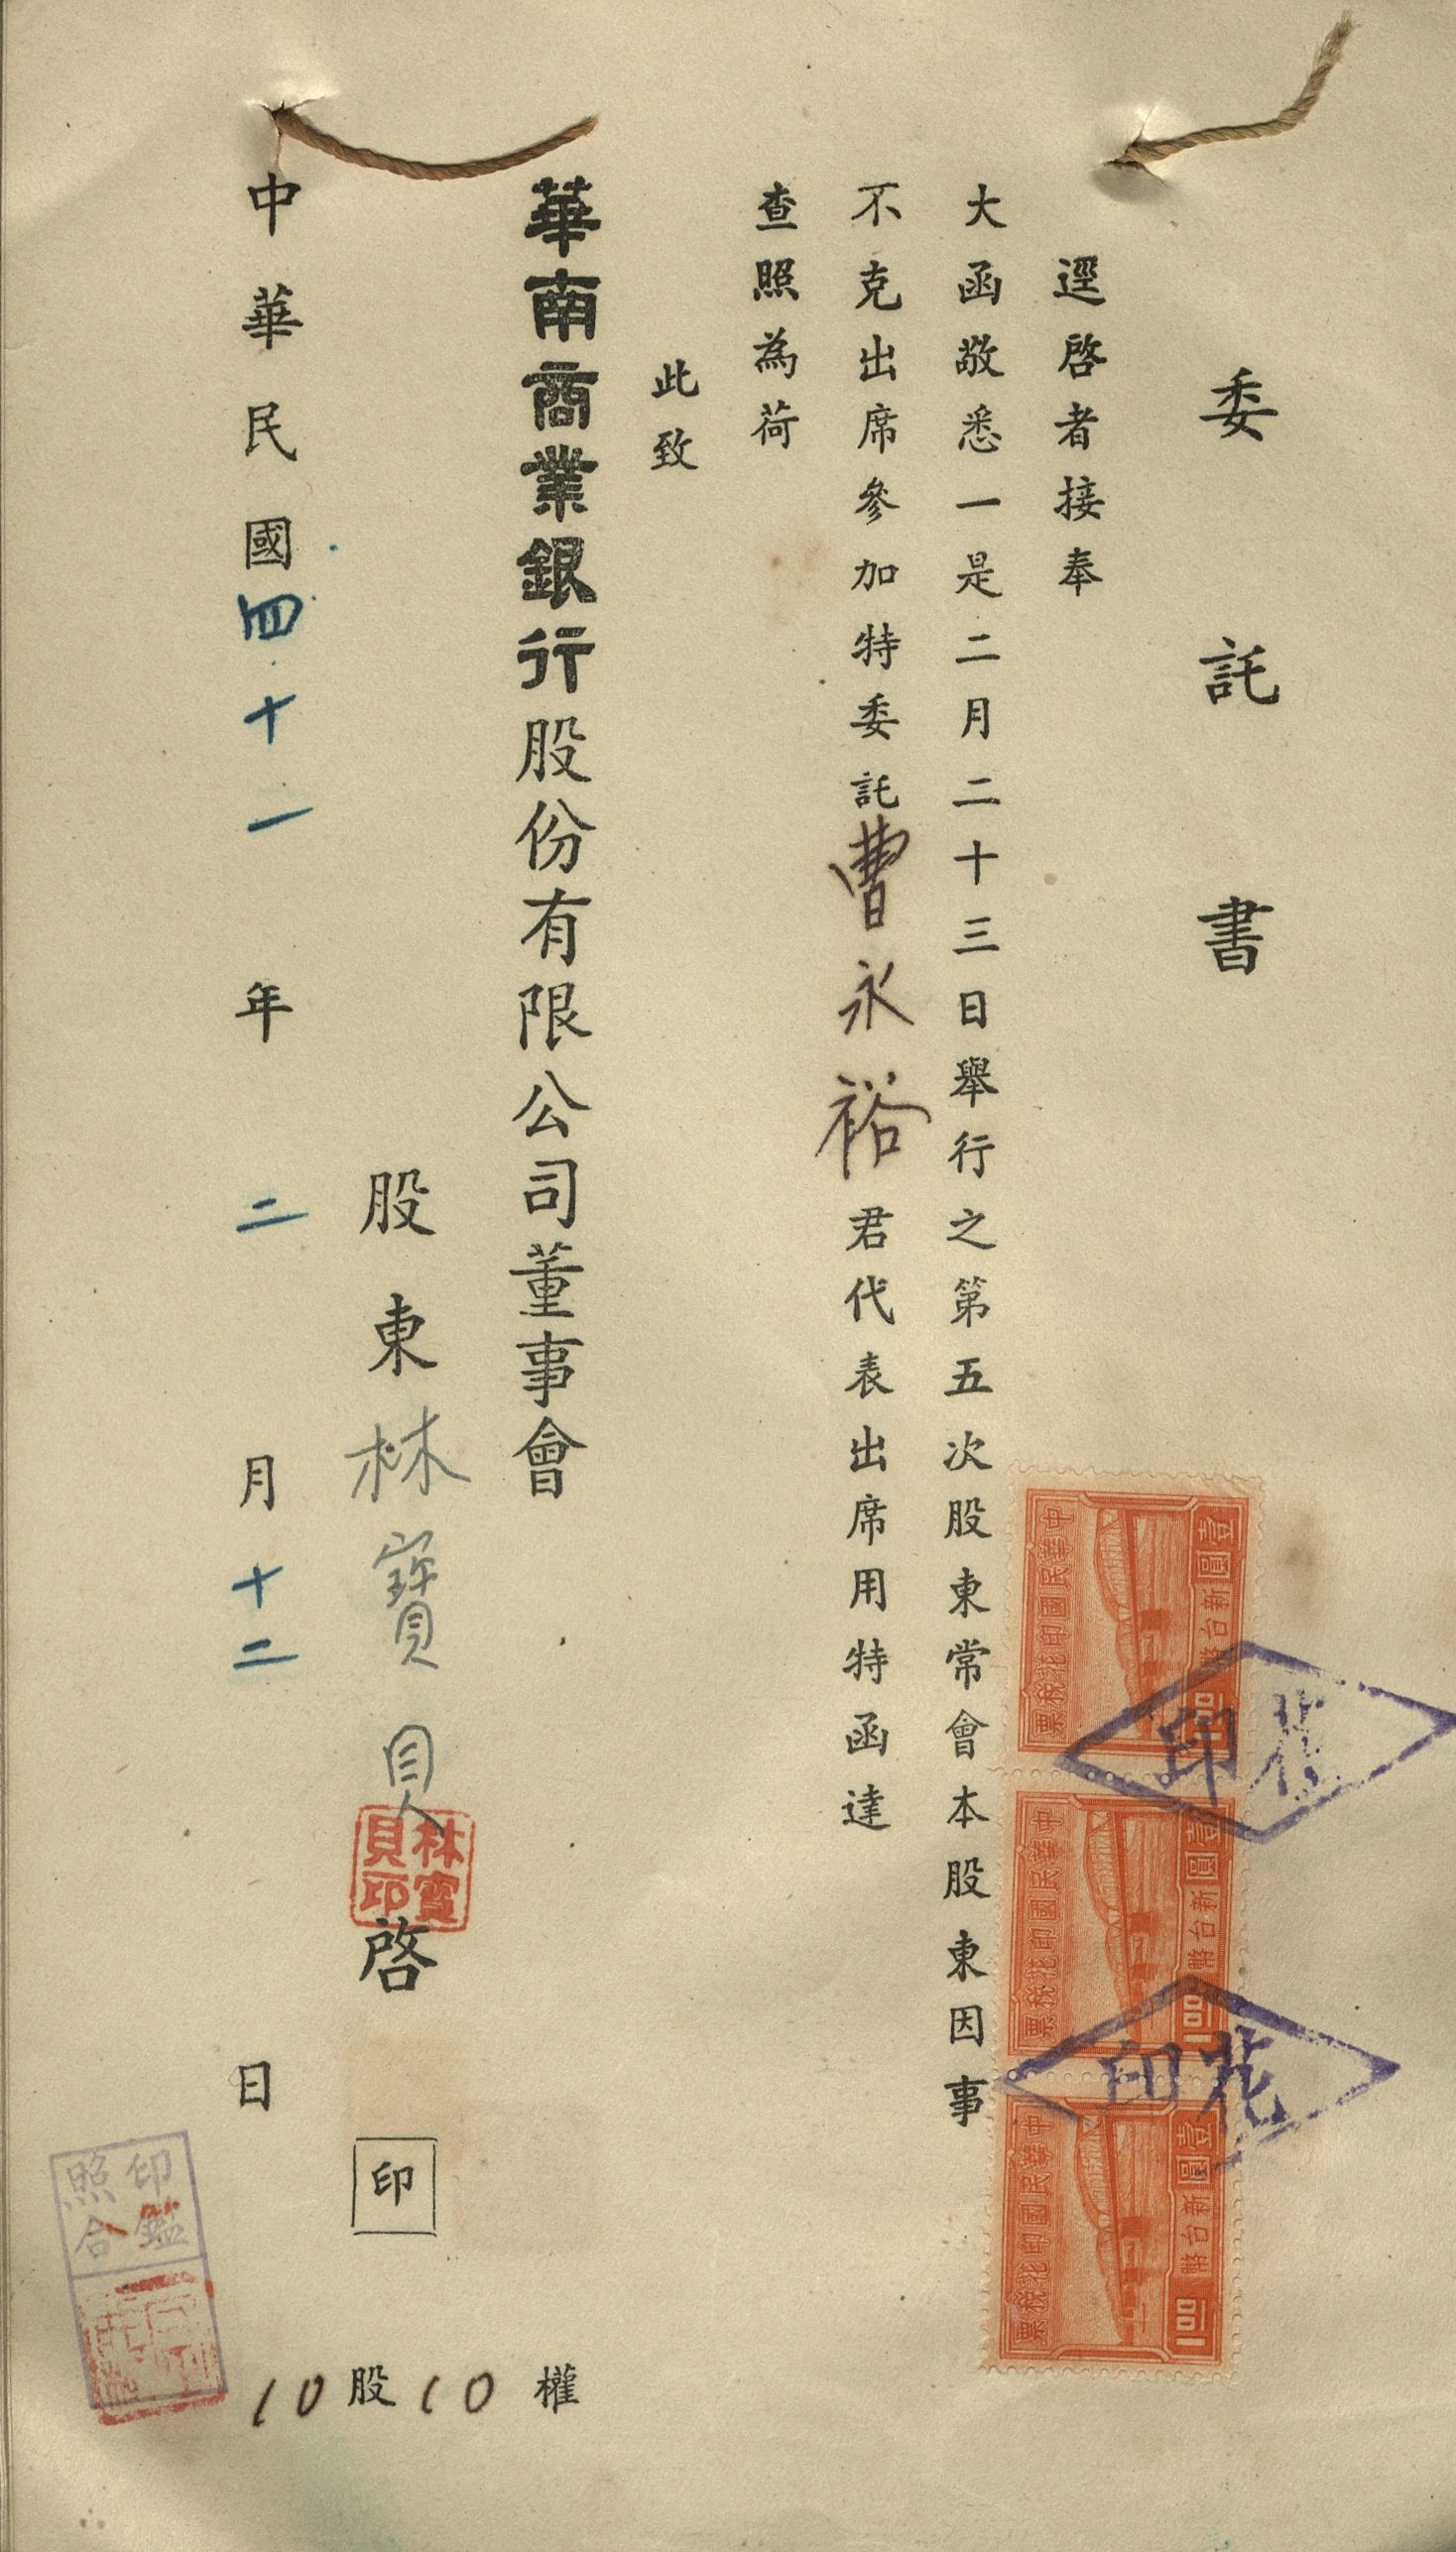 委託書
逕啓者接奉
大函敬悉一是二月二十三日舉行之第五次股東常會本股東因事
不克出席參加特委託曹永裕君代表出席用特函達
查照為荷
此致
華南商業銀行股份有限公司董事會
股東林寶貝啓 印
林寶貝印
中華民國四十一年二月十二日
10股10權
壹圓 新台幣 1.00
中華民國印花稅票
壹圓 新台幣 1.00
中華民國印花稅票
壹圓 新台幣 1.00
中華民國印花稅票
印花
印花
印鑑
照合